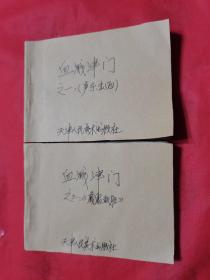 血溅津门
之一《声东击西》
天津人民美术出版社
血溅津门
天津人民美术出版社